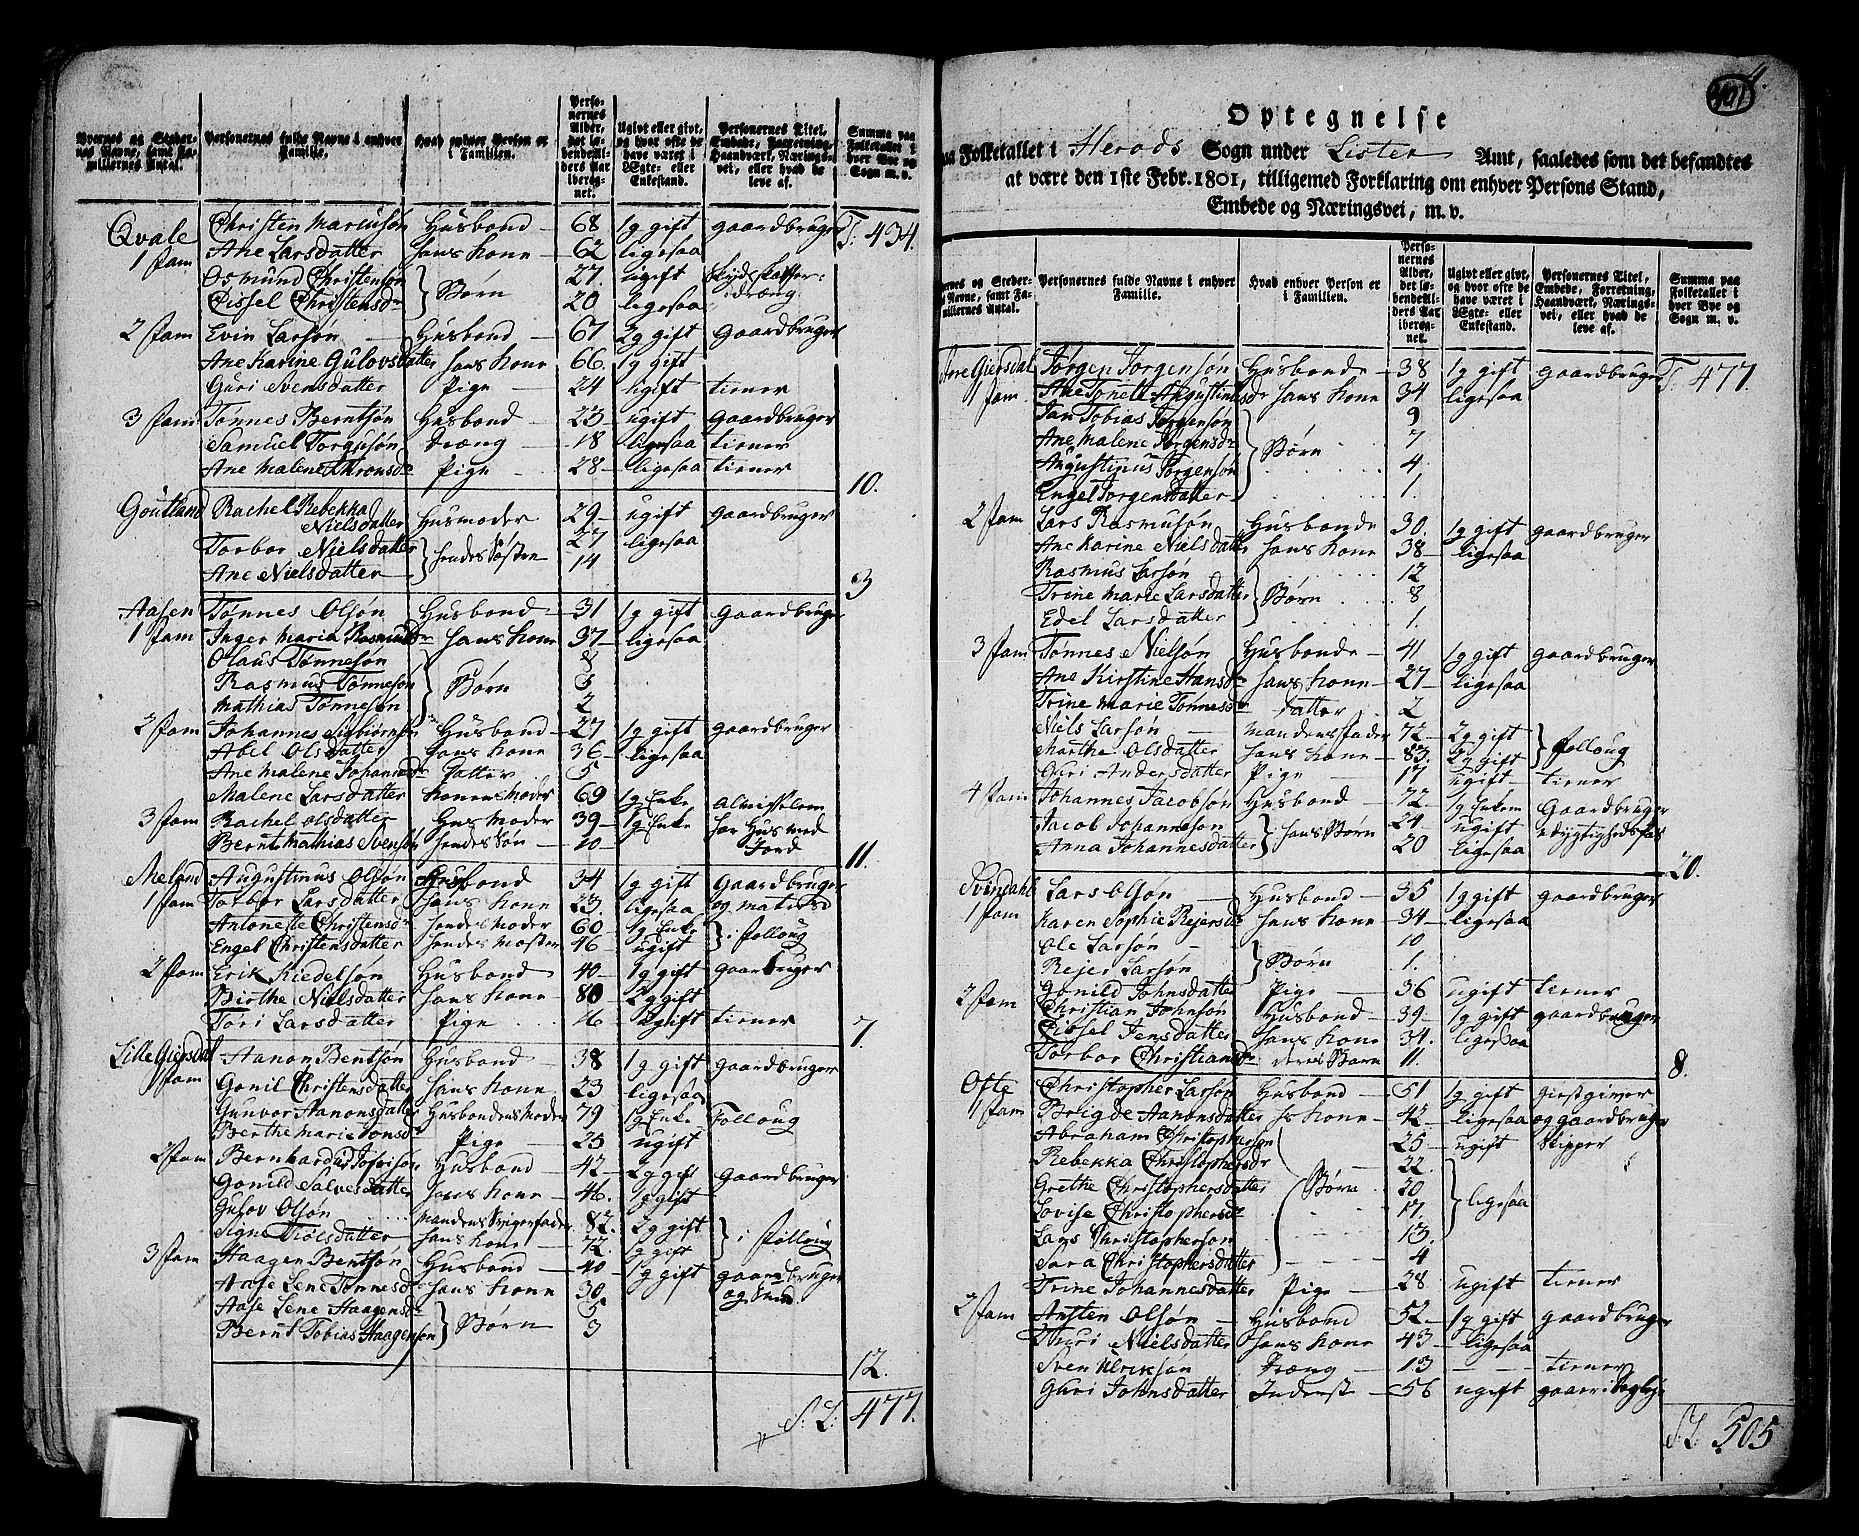 Byernes og Stedernes Navne, samt Familliernes Antal. | Personernes fulde Navne i enhver Familie. | Hvad enhver Person er i Familien. | Personernes Alder, det løbende Alders Aar iberegnet. | Ugivt eller givt, og hvor ofte de have været i Ægte- eller Enkestand. | Personernes Titel, Embede, Forretning, Haandværk, Næringsvei, eller hvad de leve af. | Summa paa Folketallet i hver Bye og Sogn m. v.
Qvale Christen Marcusøn Husbond 68 1g gift gaardbruger T: 434.
1 fam Ane Larsdatter hans Kone 62 ligesaa
Osmund Christensøn 27. ugift Skydskaffer-
Cissel Christensdr } Børn 20 ligesaa dræng.
2 fam Evin Larsøn Husbond 67 2g gift gaardbruger
Ane Karine Gulovsdatter hans Kone 66. 1g gift
Guri Svensdatter Pige 24 ugift tiener
3 fam Tønnes Berntsøn Husbond 23 ugift gaardbruger
Samuel Torgusøn dræng 18 ligesaa tiener
Ane Malene Athronsdr Pige 28 ligesaa tiener
10.
Goutland Rachel Rebekka
Nielsdatter Husmoder 29 ugift gaardbruger
Torbor Nielsdatter } hendes Søsten 27 ligesaa
Ane Nielsdatter 14
3
Aasen Tønnes Olsøn Husbond 31 1g gift gaardbruger
1 fam Inger Maria Rasmusdr hans Kone 37 ligesaa
Olaus Tønnesøn 8
Rasmus Tønnesøn } Børn 5
Mathias Tønnesøn 2
2 fam Johannes Asbiørnsøn Husbond 27 1g gift gaardbruger
Abel Olsdatter hans Kone 36 ligesaa
Ane Malene Johannesdr datter 5
Malene Larsdatter Konens Moder 69 1g Enke Almisselem
3 fam Rachel Olsdatter Husmoder 39 1g Enke har Hus med
Bernt Mathias Svensøn hendes Søn 10 Jord
11.
Meland Augustinus Olsøn Husbond 34 1g gift gaardbruger
1 fam Torbor Larsdatter hans Kone 23. ligesaa og matrosd
Antonette Christensdr hendes Moder 60 1g Enke } i folloug
Engel Christensdatter hendes Moster 46 ugift
2 fam Erik Kiedelsøn Husbond 40 1g gift gaardbruger
Birthe Nielsdatter hans Kone 80 2g gift
Tøri Larsdatter Pige 16 ugift tiener
7.
Lille Giersdal Aanon Bentsøn Husbond 38 1g gift gaardbruger
1 fam Gonil Christensdatter hans Kone 23 ligesaa
Gunvor Aanonsdatter Husbondens Moder 79 1g Enke Folloug
Berthe Marie Jonsdr Pige 25 ugift
2 fam Bernhardus Jofvison Husbond 42 2g gift gaardbruger
Gonild Salvesdatter hans Kone 46. 1g gift
Gulov Olsøn Mandens Svigerfader 82. 2g gift } i folloug
Signe Troelsdatter hans Kone 72. 1g gift
3 fam Haagen Bentsøn Husbond 40 1g gift gaardbruger
Aase Lene Tønnesdr hans Kone 30 og smed
Aase Lene Haagensdr } Børn 5
Bernt Tobias Haagenson 3
12.
S: L: 477.
401
Optegnelse
paa Folketallet i Herods Sogn under Lister Amt, saaledes som det befandtes
at være den 1ste Febr. 1801, tilligemed Forklaring om enhver Persons Stand,
Embede og Næringsvei, m. v.
Byernes og Stedernes Navne, samt Familliernes Antal. | Personernes fulde Navne i enhver Familie. | Hvad enhver Person er i Familien. | Personernes Alder, det løbende Alders Aar iberegnet. | Ugivt eller givt, og hvor ofte de have været i Ægte- eller Enkestand. | Personernes Titel, Embede, Forretning, Haandværk, Næringsvei, eller hvad de leve af. | Summa paa Folketallet i hver Bye og Sogn m. v.
Store Giersdal Jørgen Jørgensøn Husbonde 38 1g gift gaardbruger T: 477.
1 fam Ane Tonett Augustinusdr hans Kone 34 ligesaa
Jan Tobias Jørgensøn 9
Ane Malene Jørgensdr } Børn 7
Augustinus Jørgensøn 4
Engel Jorgensdatter 1.
2 fam Lars Rasmusøn Husbonde 30. 1g gift gaardbruger
Ane Karine Nielsdatter hans Kone 38 ligesaa
Rasmus Larsøn 12
Trine Marie Larsdatter } Børn 8
Edel Larsdatter 1.
3 fam Tønnes Nielsøn Husbonde 41 1g gift gaardbruger
Ane Kirstine Hansdr hans Kone 27 ligesaa
Trine Marie Tønnesdr datter 2
Niels Larsøn Mandens fader 72 2g gift } folloug
Marthe Olsdatter hans Kone 83. 2g gift
Guri Andersdatter Pige 17 ugift tiener
4 fam Johannes Jacobsøn Husbond 72 1g Enkem Gaardbruger
Jacob Johannesøn } hans Børn 24 ugift
Anna Johannesdatter 20 ligesaa
20.
Svindahl Lars Olsøn Husbond 35 1g gift gaardbruger
1 fam Karen Sophie Rejersdr hans Kone 34 ligesaa
Ole Larsøn } Børn 10
Rejer Larsøn 1.
Gonild Johnsdatter Pige 36 ugift tiener
2 fam Christian Johnsøn Husbond 39 1g gift gaardbruger
Cissel Jensdatter hans Kone 34. ligesaa
Torbor Christiansdr deres Barn 11.
8.
Ofte Christopher Larsøn Husbond 51 1g gift giestgiver
1 fam Brigde Aanonsdatter hs Kone 42 ligesaa og gaardbruger
Abraham Christophersøn 25 ugift skipper
Rebekka Christophersdr 22
Grethe Christophersdatter } Børn 20 } ligesaa
Lovise Christophersdr 17.
Lars Christopherson 13.
Sara Christophersdatter 4
Trine Johannesdatter Pige 28 ugift tiener
2 fam Austen Olsøn Husbond 52 1g gift gaardbruger
Thuri Nielsdatter hans Kone 43 ligesaa
Sven Ulriksøn dræng 13 tiener
Guri Johnsdatter Inderst 56 ugift gaar i Dagleje
S: L: 505